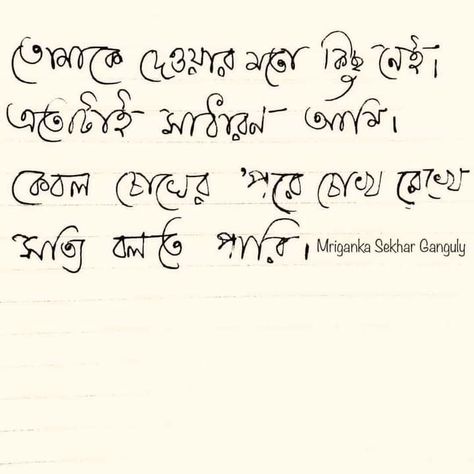 তোমাকে দেওয়ার মতো কিছু নেই।
এতোটাই সাধারন আমি।
কেবল চোখের 'পরে চোখ রেখে
সত্যি বলতে পারি। Mriganka Sekhar Ganguly